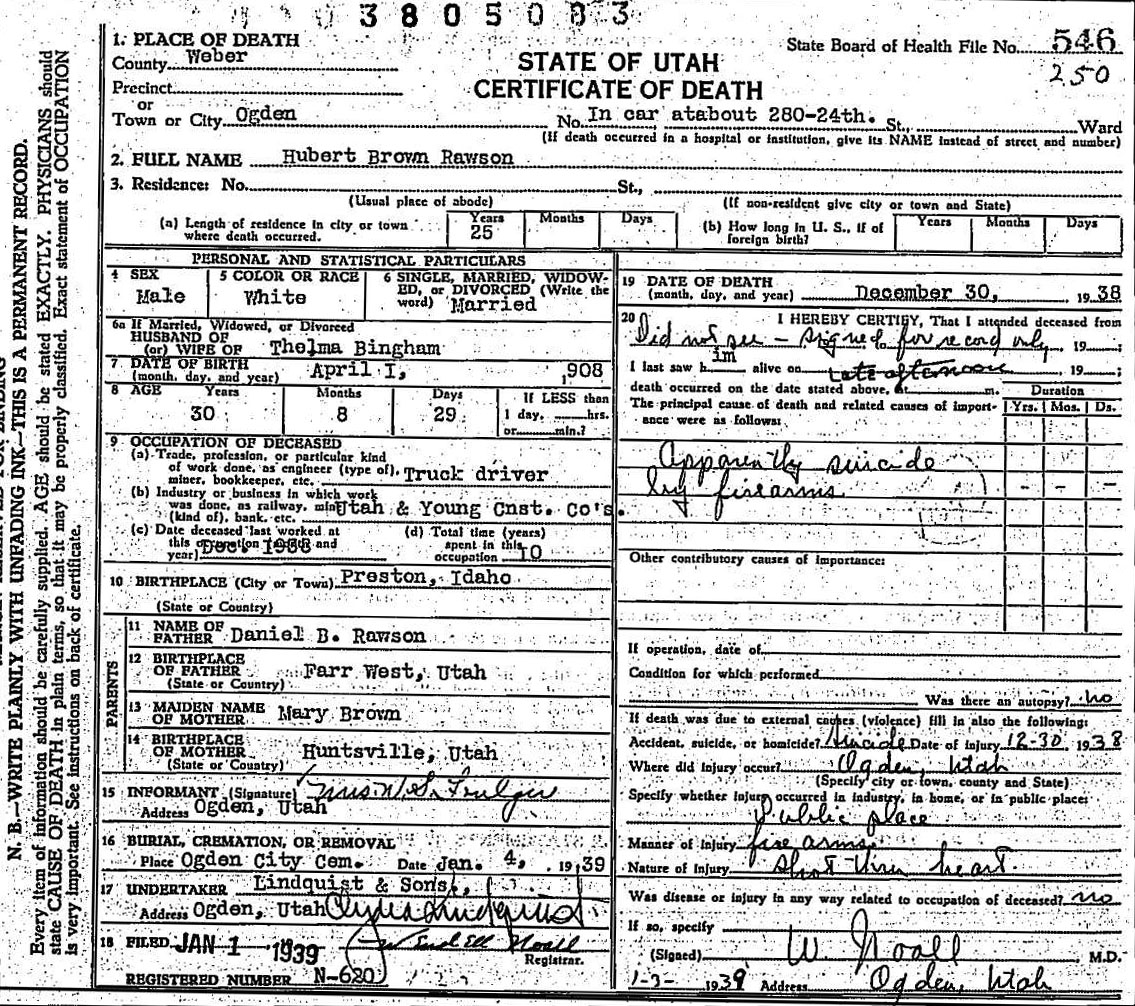 3805083
1. PLACE OF DEATH
County Weber
State Board of Health File No. 546
250
STATE OF UTAH
CERTIFICATE OF DEATH
Precinct
or
Town or City Ogden No. In car atabout 280-24th. St., Ward
(If death occurred in a hospital or institution, give its NAME instead of street and number)
2. FULL NAME Hubert Brown Rawson
3. Residence: No. St.,
(Usual place of abode) (If non-resident give city or town and State)
(a) Length of residence in city or town where death occurred. Years 25 Months Days
(b) How long in U. S., if of foreign birth? Years Months Days
PERSONAL AND STATISTICAL PARTICULARS
4 SEX Male
5 COLOR OR RACE White
6 SINGLE, MARRIED, WIDOW-
ED, or DIVORCED (Write the
word) Married
6a If Married, Widowed, or Divorced
HUSBAND OF
(or) WIFE OF Thelma Bingham
7 DATE OF BIRTH
(month, day, and year) April I, ,908
8 AGE Years Months Days If LESS than
30 8 29 1 day, hrs.
or min.?
9 OCCUPATION OF DECEASED
(a) Trade, profession, or particular kind
of work done, as engineer (type of),
miner, bookkeeper, etc. Truck driver
(b) Industry or business in which work
was done, as railway, min Utah & Young Cnst. Co's.
(kind of), bank, etc.
(c) Date deceased last worked at
this occupation (month and
year) Dec. 1938
(d) Total time (years)
spent in this
occupation 10
10 BIRTHPLACE (City or Town) Preston, Idaho
(State or Country)
PARENTS
11 NAME OF
FATHER Daniel B. Rawson
12 BIRTHPLACE
OF FATHER Farr West, Utah
(State or Country)
13 MAIDEN NAME
OF MOTHER Mary Brown
14 BIRTHPLACE
OF MOTHER Huntsville, Utah
(State or Country)
15 INFORMANT (Signature) Mrs. W. S. Foulger
Address Ogden, Utah
16 BURIAL, CREMATION, OR REMOVAL
Place Ogden City Cem. Date Jan. 4, , 19,39
17 UNDERTAKER Lindquist & Sons,
Address Ogden, Utah Clyde Lindquist
18 FILED JAN 1 1939 Wendell Noall
Registrar.
REGISTERED NUMBER N-620
19 DATE OF DEATH
(month, day, and year) December 30, 1938
20 I HEREBY CERTIFY, That I attended deceased from
Did not see - signed for record only, 19 ;
I last saw him alive on late afternoon, 19 ;
death occurred on the date stated above, at m. Duration
The principal cause of death and related causes of import- Yrs. Mos. Ds.
ance were as follows:
Apparently suicide
by firearms - - -
Other contributory causes of importance:
If operation, date of
Condition for which performed
Was there an autopsy? no
If death was due to external causes (violence) fill in also the following:
Accident, suicide, or homicide? Suicide Date of injury 12-30 1938
Where did injury occur? Ogden, Utah
(Specify city or town, county and State)
Specify whether injury occurred in industry, in home, or in public place:
Public place
Manner of Injury fire arms
Nature of Injury shot thru heart.
Was disease or injury in any way related to occupation of deceased? no
If so, specify
(Signed) W Noall M.D.
1-3- 1939 Address Ogden, Utah
N. B.—WRITE PLAINLY WITH UNFADING INK—THIS IS A PERMANENT RECORD.
Every item of information should be carefully supplied. AGE should be stated EXACTLY. PHYSICIANS should
state CAUSE OF DEATH in plain terms, so that it may be properly classified. Exact statement of OCCUPATION
is very important. See instructions on back of certificate.